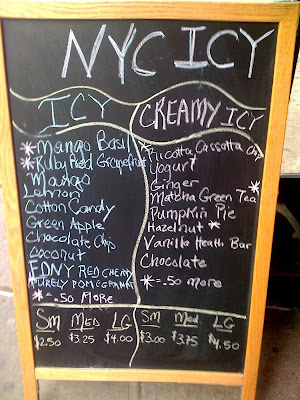 NYC ICY
ICY
*Mango Basil
*Ruby Red Grapefruit
Mango
Lemon
Cotton Candy
Green Apple
Chocolate Chip
Coconut
EDNY RED CHERRY
PURELY POMEGRANATE
*=.50 MORE
SM MED LG
$2.50 $3.25 $4.00
CREAMY ICY
Ricotta Cassatta Chip
Yogurt
Ginger *
Matcha Green Tea
Pumpkin Pie
Hazelnut *
Vanilla Heath Bar
Chocolate
*=.50 more
SM Med LG
$3.00 $3.75 $4.50